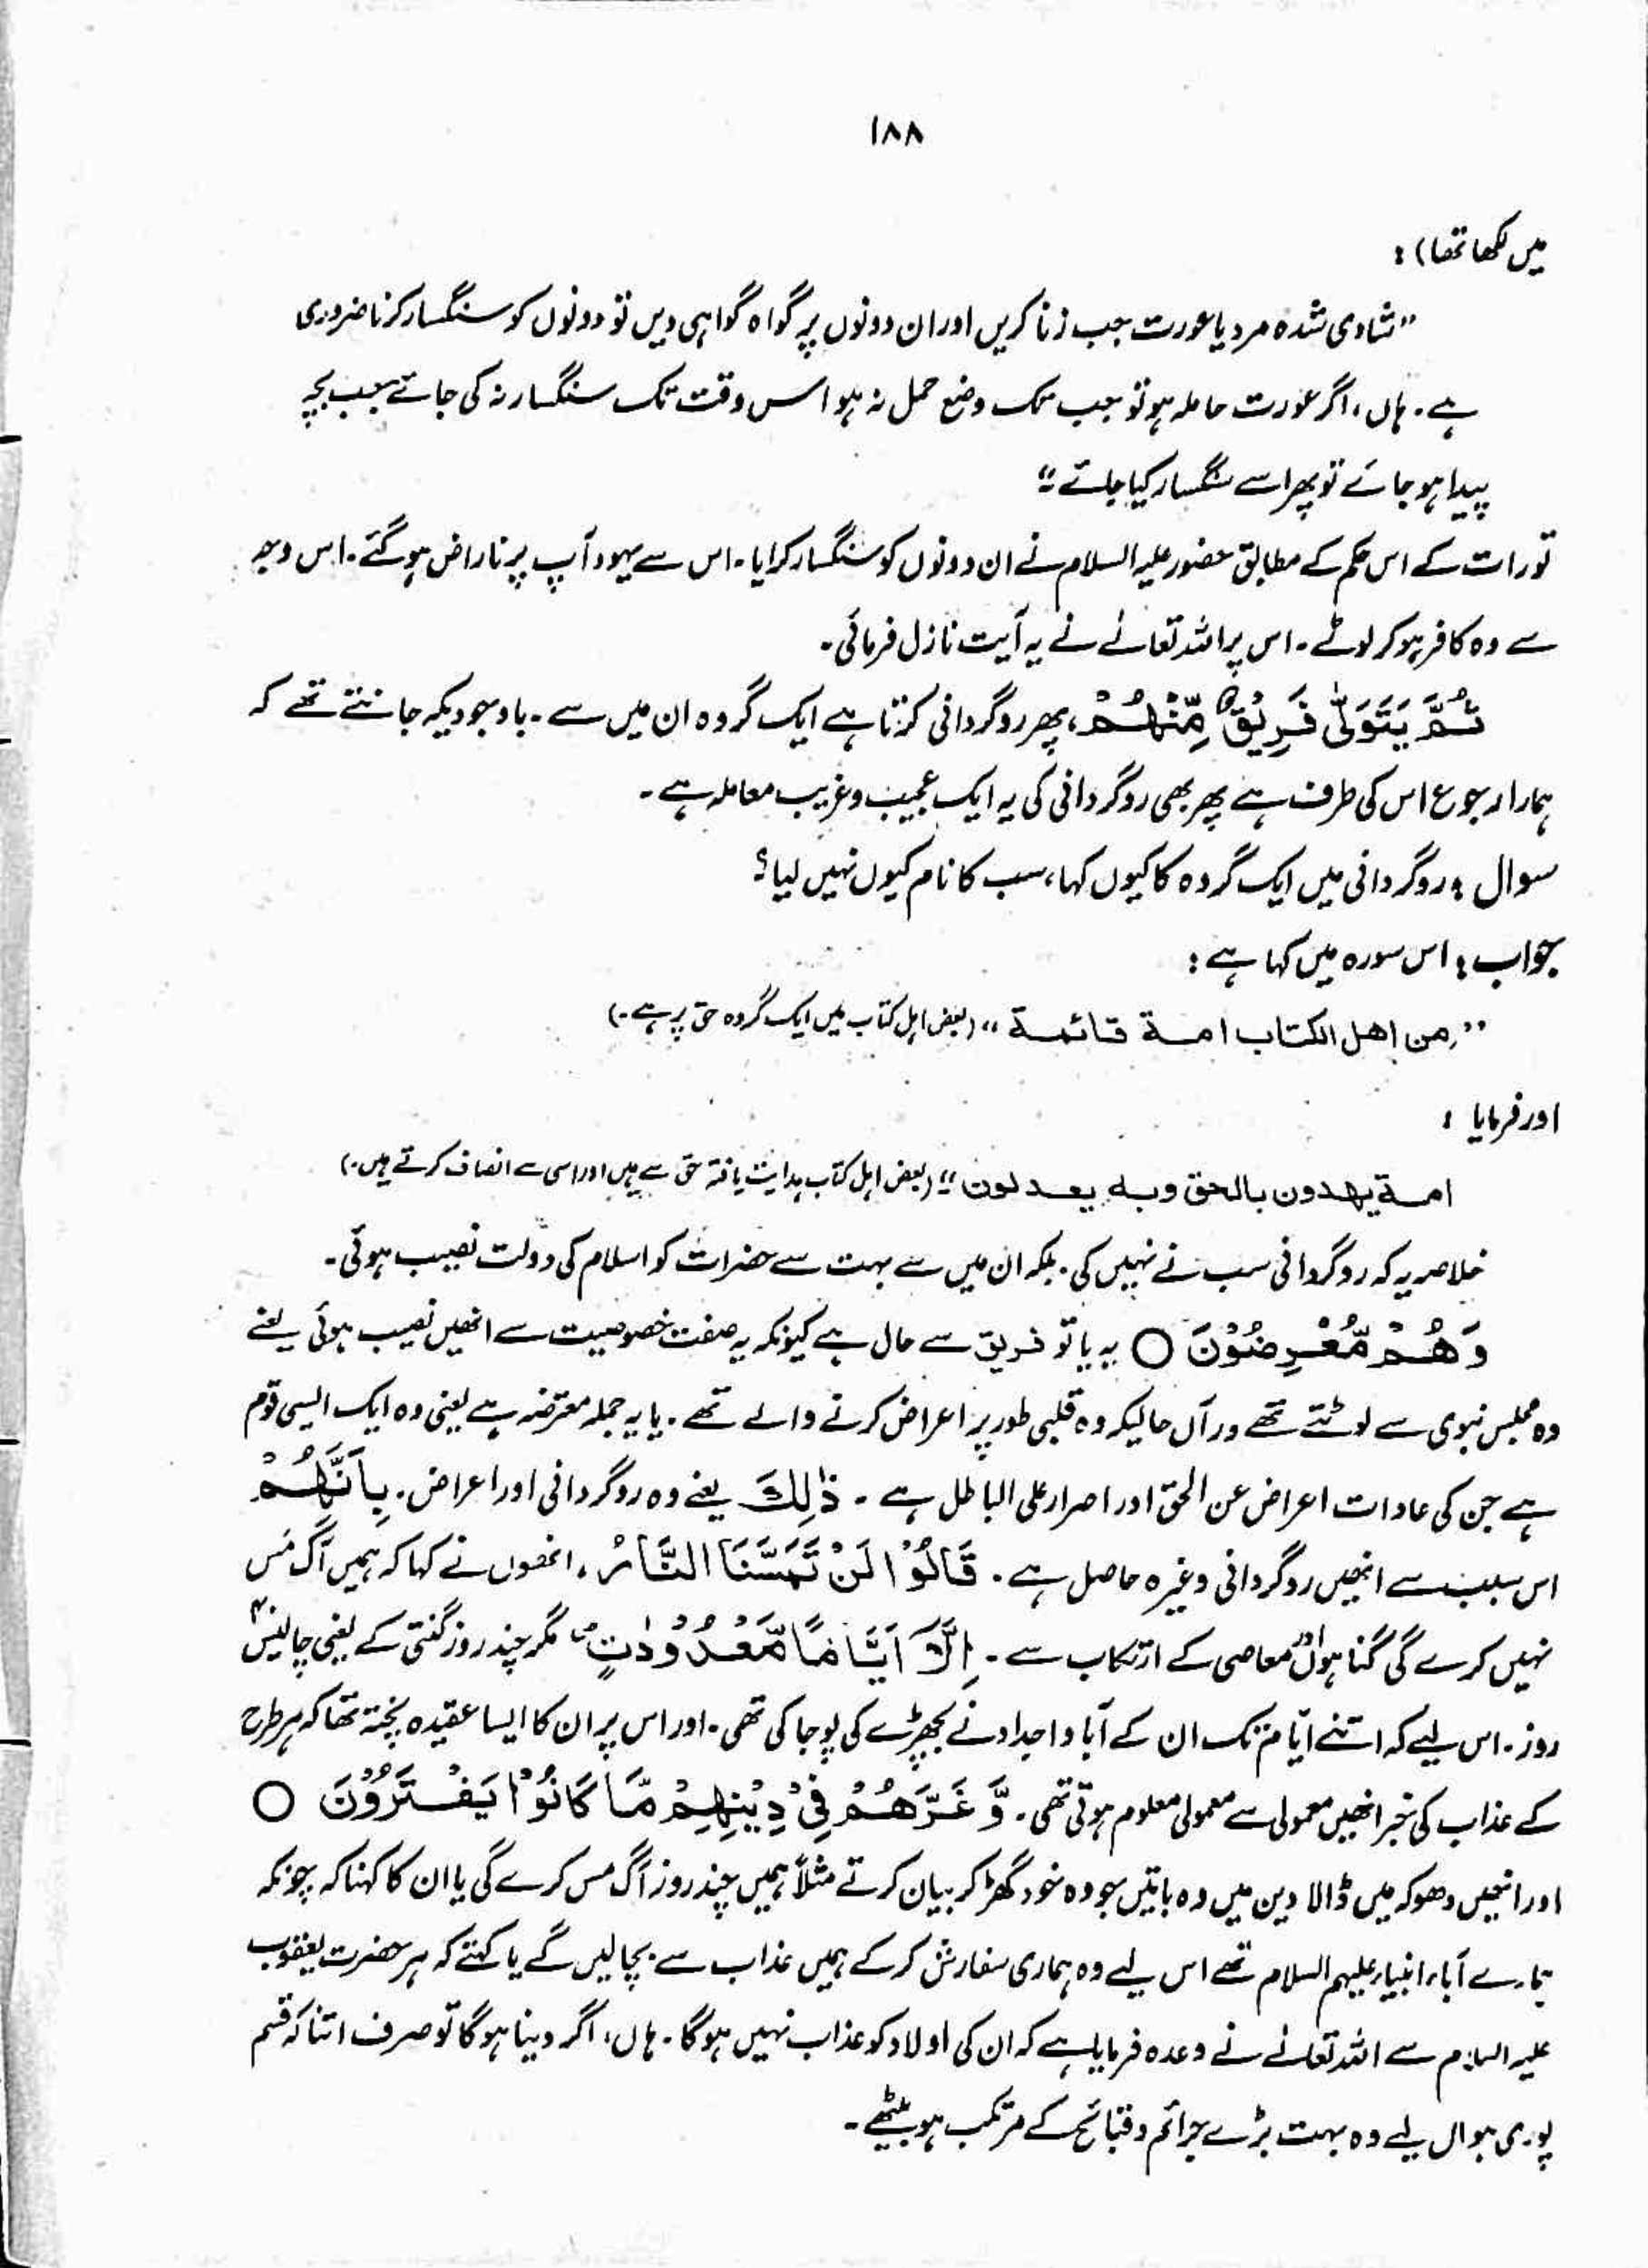 ۱۸۸
میں لکھا تھا) :
"شادی شدہ مرد یا عورت جب زنا کریں اور ان دونوں پر گواہ گواہی دیں تو دونوں کو سنگسار کرنا ضروری
ہے۔ ہاں، اگر عورت حاملہ ہو تو جب تک وضع حمل نہ ہو اس وقت تک سنگسار نہ کی جائے جب بچہ
پیدا ہو جائے تو پھر اسے سنگسار کیا جائے۔"
تورات کے اس حکم کے مطابق حضور علیہ السلام نے ان دونوں کو سنگسار کرایا۔ اس سے یہود آپ پر ناراض ہو گئے۔ اس وجہ
سے وہ کافر ہو کر لوٹے۔ اس پر اللہ تعالےٰ نے یہ آیت نازل فرمائی۔
ثُمَّ یَتَوَلّٰی فَرِیْقٌ مِّنْهُمْ، پھر روگردانی کرتا ہے ایک گروہ ان میں سے۔ باوجودیکہ جانتے تھے کہ
ہمارا رجوع اس کی طرف ہے پھر بھی روگردانی کی یہ ایک عجیب و غریب معاملہ ہے۔
سوال : روگردانی میں ایک گروہ کا کیوں کہا، سب کا نام کیوں نہیں لیا؟
جواب : اس سورہ میں کہا ہے :
"من اھل الکتاب امة قائمة" (بعض اہل کتاب میں ایک گروہ حق پر ہے۔)
اور فرمایا :
امة یھدون بالحق وبه یعدلون" (بعض اہل کتاب ہدایت یافتہ حق سے ہیں اور اسی سے انصاف کرتے ہیں۔)
خلاصہ یہ کہ روگردانی سب نے نہیں کی۔ بلکہ ان میں سے بہت سے حضرات کو اسلام کی دولت نصیب ہوئی۔
وَهُمْ مُّعْرِضُوْنَ ○ یہ یا تو فریق سے حال ہے کیونکہ یہ صفت خصوصیت سے انھیں نصیب ہوئی یعنے
وہ مجلس نبوی سے لوٹتے تھے درآں حالیکہ وہ قلبی طور پر اعراض کرنے والے تھے۔ یا یہ جملہ معترضہ ہے یعنی وہ ایک ایسی قوم
ہے جن کی عادات اعراض عن الحق اور اصرار علی الباطل ہے۔ ذٰلِكَ یعنے وہ روگردانی اور اعراض۔ بِاَنَّهُمْ
اس سبب سے انھیں روگردانی وغیرہ حاصل ہے۔ قَالُوْا لَنْ تَمَسَّنَا النَّارُ، انھوں نے کہا کہ ہمیں آگ مَس
نہیں کرے گی گناہوں اور معاصی کے ارتکاب سے۔ اِلَّاۤ اَیَّامًا مَّعْدُوْدٰتٍ ص مگر چند روز گنتی کے یعنی چالیس ۴۰
روز۔ اس لیے کہ اتنے ایّام تک ان کے آبا و اجداد نے بچھڑے کی پوجا کی تھی۔ اور اس پر ان کا ایسا عقیدہ پختہ تھا کہ ہر طرح
کے عذاب کی خبر انھیں معمولی سے معمولی معلوم ہوتی تھی۔ وَّ غَرَّهُمْ فِیْ دِیْنِهِمْ مَّا كَانُوْا یَفْتَرُوْنَ ○
اور انھیں دھوکہ میں ڈالا دین میں وہ باتیں جو وہ خود گھڑ کر بیان کرتے مثلاً ہمیں چند روز آگ مس کرے گی یا ان کا کہنا کہ چونکہ
ہمارے آباء انبیاء علیہم السلام تھے اس لیے وہ ہماری سفارش کر کے ہمیں عذاب سے بچالیں گے یا کہتے کہ ہر حضرت یعقوب
علیہ السلام سے اللہ تعالےٰ نے وعدہ فرمایا ہے کہ ان کی اولاد کو عذاب نہیں ہوگا۔ ہاں، اگر دینا ہوگا تو صرف اتنا کہ قسم
پوری ہو ال لیے وہ بہت بڑے جرائم و قبائح کے مرتکب ہو بیٹھے۔